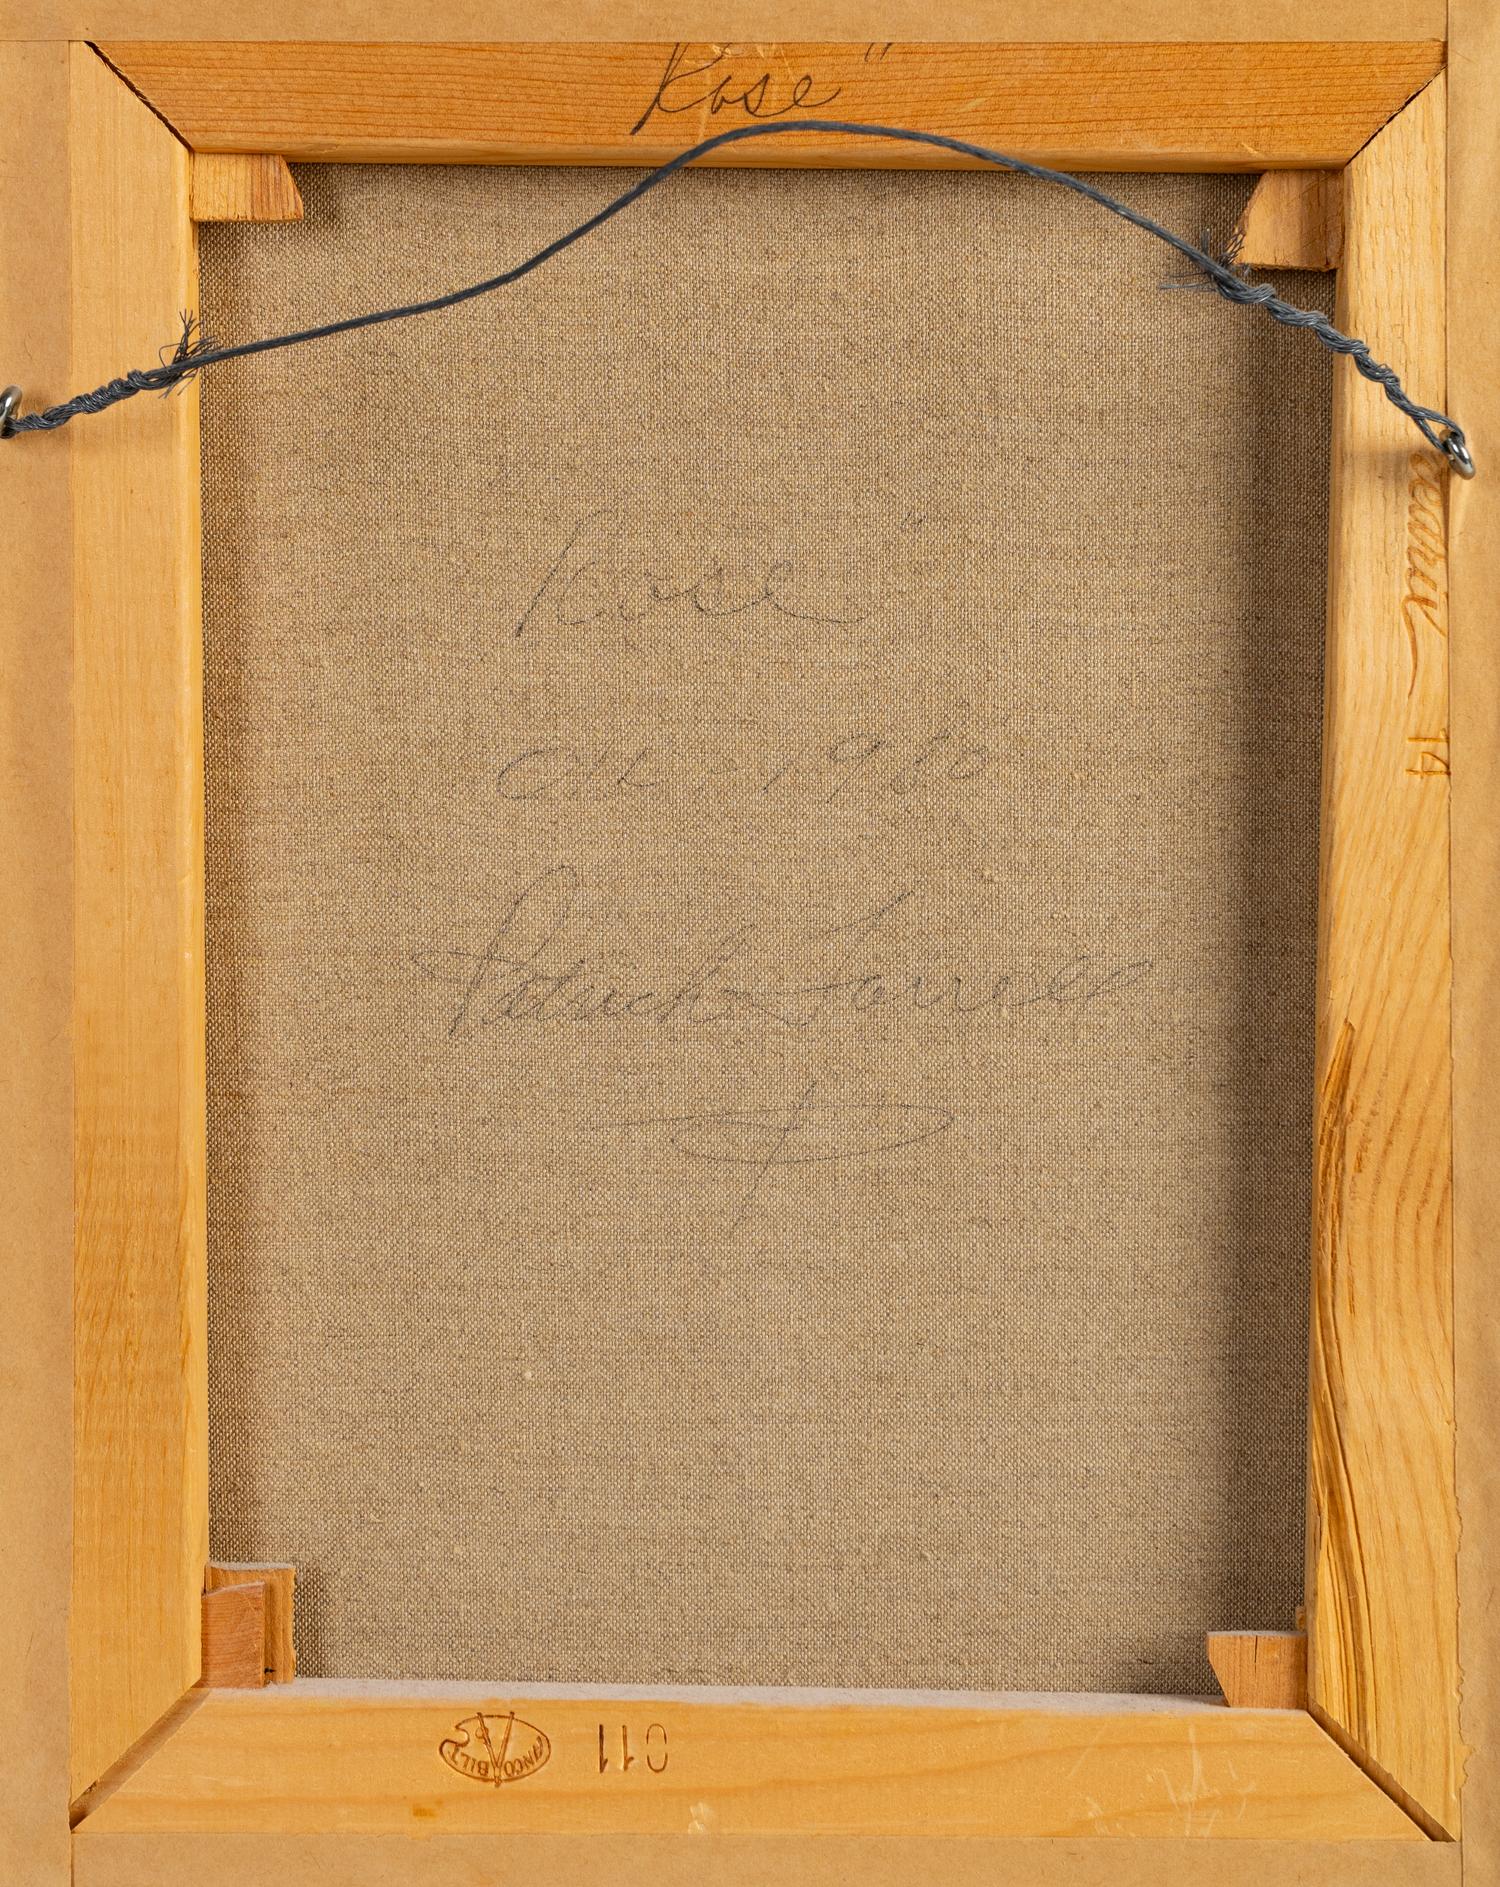 Rose"
Rose"
OIL - 1980
Patrick Farrell
14
ANCO BILT 011